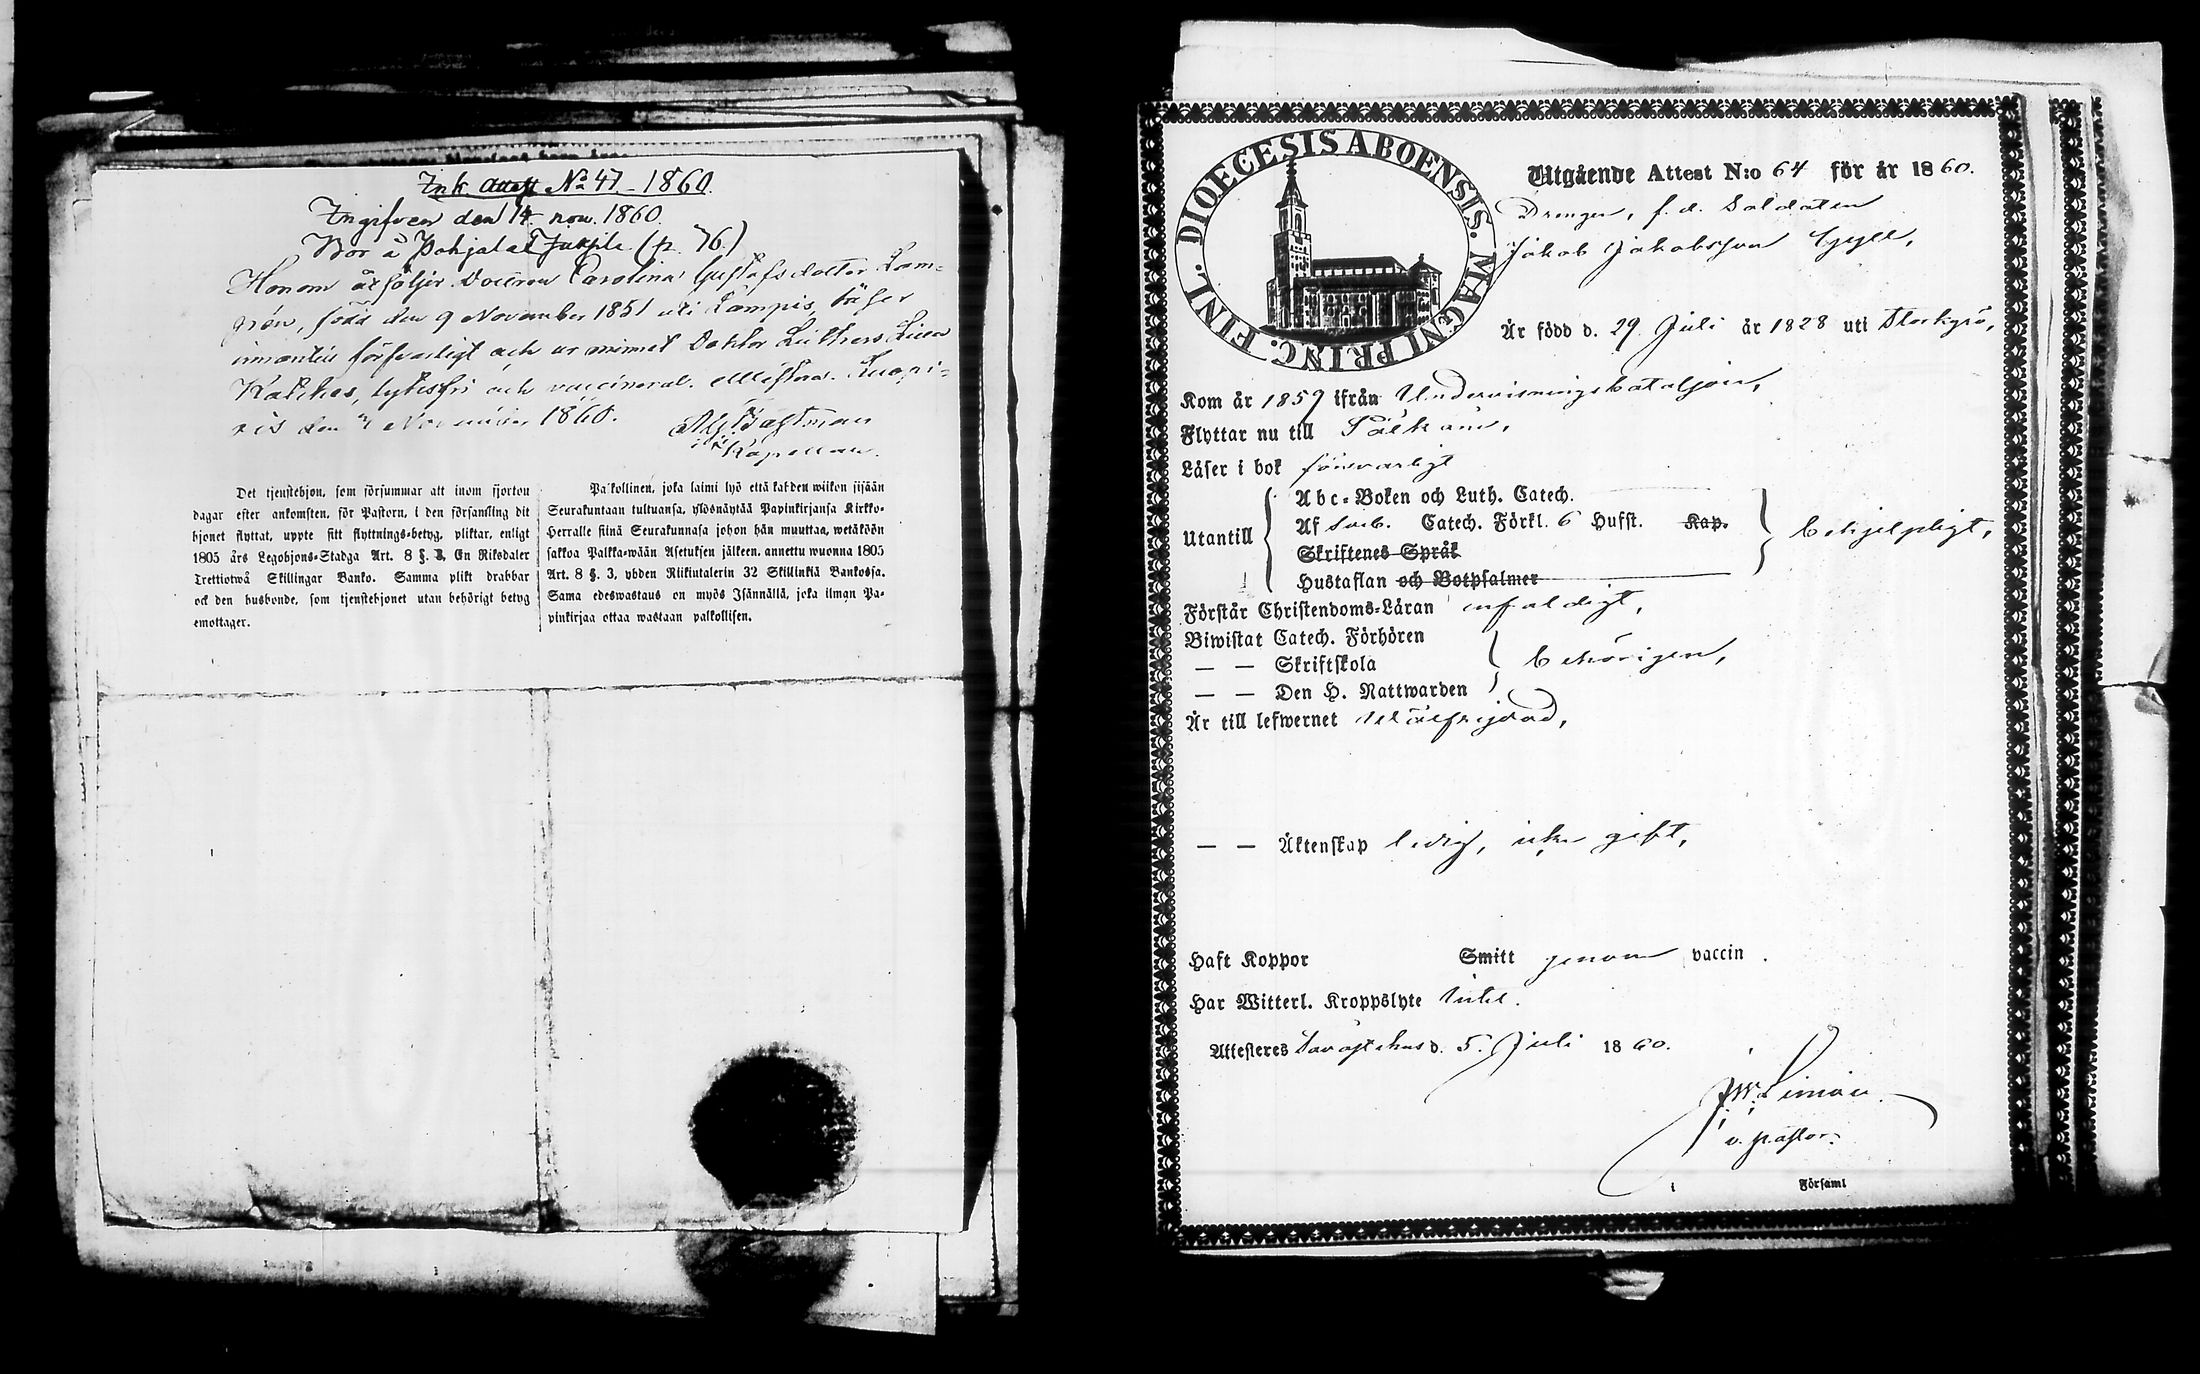 Ink. Attest No 47 - 1860.
Ingifven den 14 nov. 1860.
Bor å Pohjalais Juttila (p. 76.)
Honom åtföljer Dottren Carolina Gustafsdotter Lam-
grén, född den 9 November 1851 uti Lampis, läser
innantill försvarligt och ur minnet Doktor Luthers Lilla
Katches, lytesfri och vaccinerad. Attestera. Kuopi-
den November 1860.
Kapellan.
Det tjenstehjon, som försummar att inom fjorton
dagar efter ankomsten, för Pastorn, i den församling dit
hjonet flyttat, uppte sitt flyttnings-betyg, pliktar, enligt
1805 års Legohjons-Stadga Art. 8 §. 3, En Riksdaler
Trettiotwå Skillingar Banko. Samma plikt drabbar
ock den husbonde, som tjenstehjonet utan behörigt betyg
emottager.
Palkollinen, joka laimi lyö että kahden wiikon sisään
Seurakuntaan tultuansa, ylösnäyttää Papinkirjansa Kirkko-
Herralle siinä Seurakunnasa johon hän muuttaa, wetäköön
sakkoa Palkka-wään Asetuksen jälkeen, annettu wuonna 1805
Art. 8 §. 3, yhden Riikintalerin 32 Skillinkiä Bankossa.
Sama edeswastaus on myös Isännällä, joka ilman Pa-
pinkirjaa ottaa wastaan palkollisen.
DIOECESIS ABOENSIS. MAGNI PRINC. FINL.
Utgående Attest N:o 64 för år 1860.
Drengen, f. d. Soldaten
Jakob Jakobsson Gyll,
Är född d. 29 Juli år 1828 uti Storkyrö,
Kom år 1859 ifrån Undervisningsbataljon,
Flyttar nu till Pälkäne,
Läser i bok försvarligt
Utantill
Abc-Boken och Luth. Catech.
Af Sveb. Catech. Förkl. 6 Hufst. Kap.
Skriftenes Språk
Hustaflan och Botpsalmer
behjelpligt,
Förstår Christendoms-Läran enfaldigt,
Biwistat Catech. Förhören
— — Skriftskola
— — Den H. Nattwarden
behörigen,
Är till lefwernet wälfrejdad,
— — Äktenskap ledig, icke gift,
Haft Koppor Smitt genom vaccin.
Har Witterl. Kroppslyte intet.
Attesteres Tavastehus d. 5. Juli 1860.
v. pastor.
Församl